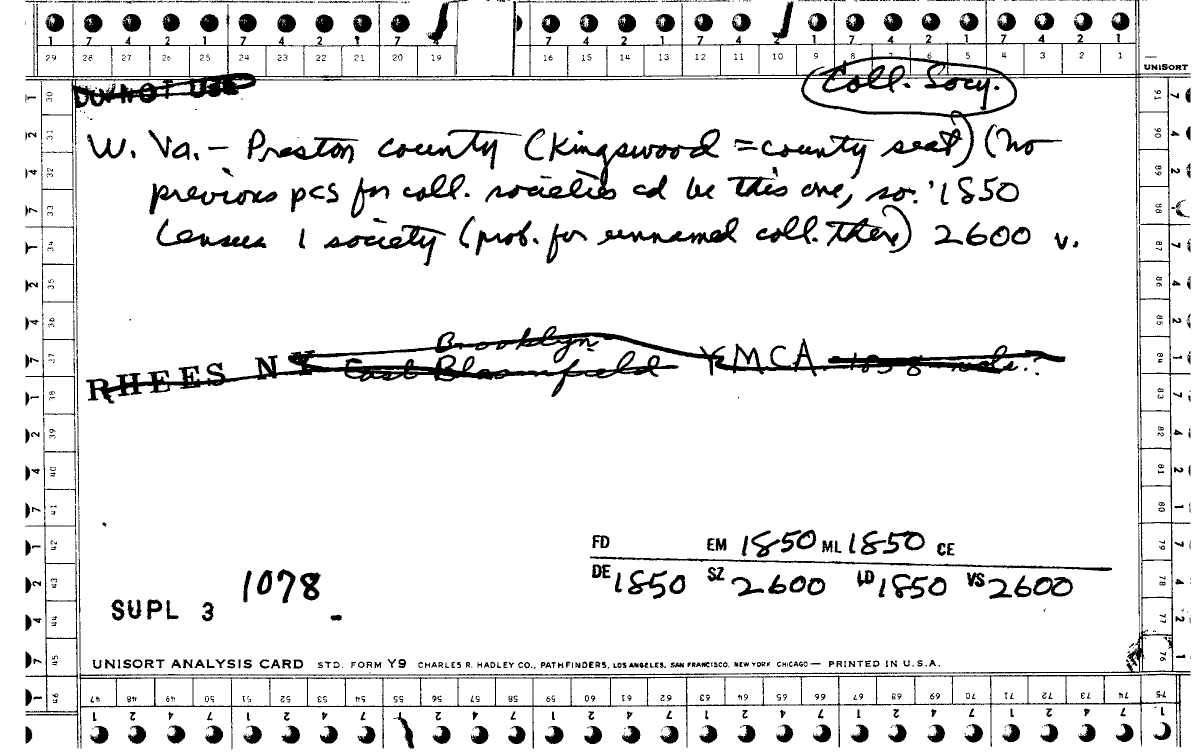 1 7 4 2 1 7 4 2 1 7 4 7 4 2 1 7 4 2 1 7 4 2 1 7 4 2 1
29 28 27 26 25 24 23 22 21 20 19 16 15 14 13 12 11 10 9 8 7 6 5 4 3 2 1
UNISORT
DO NOT USE
Coll. Socy.
W. Va.- Preston county (Kingswood = county seat) (no
previous pcs for coll. societies cd be this one, so. '1850
Census 1 society (prob. for unnamed coll. there) 2600 v.
Brooklyn
RHEES NY East Bloomfield YMCA 1858
FD EM 1850 ML 1850 CE
DE 1850 SZ 2600 LD 1850 VS 2600
1078
SUPL 3 -
UNISORT ANALYSIS CARD STD. FORM Y9 CHARLES R. HADLEY CO., PATHFINDERS, LOS ANGELES, SAN FRANCISCO, NEW YORK CHICAGO — PRINTED IN U.S.A.
47 48 49 50 51 52 53 54 55 56 57 58 59 60 61 62 63 64 65 66 67 68 69 70 71 72 73 74 75